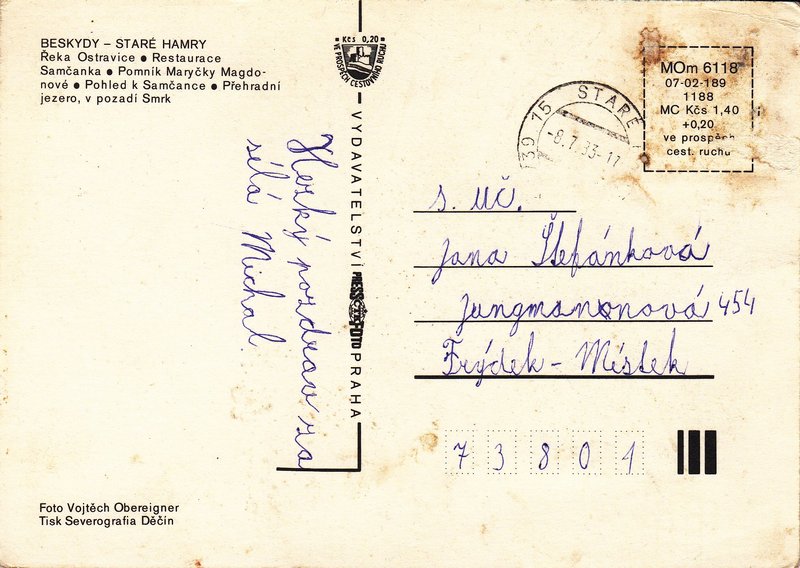 BESKYDY – STARÉ HAMRY
Řeka Ostravice • Restaurace
Samčanka • Pomník Maryčky Magdo-
nové • Pohled k Samčance • Přehradní
jezero, v pozadí Smrk
Kčs 0,20
VE PROSPĚCH CESTOVNÍHO RUCHU
739 15 STARÉ
-8.7.83-17
MOm 6118
07-02-189
1188
MC Kčs 1,40
+0,20
ve prospěch
cest. ruchu
VYDAVATELSTVÍ PRESSFOTO PRAHA
Hezký pozdrav za
sílá Michal.
s. uč.
Jana Štefánková
Jungmanonová 454
Frýdek - Místek
73801
Foto Vojtěch Obereigner
Tisk Severografia Děčín